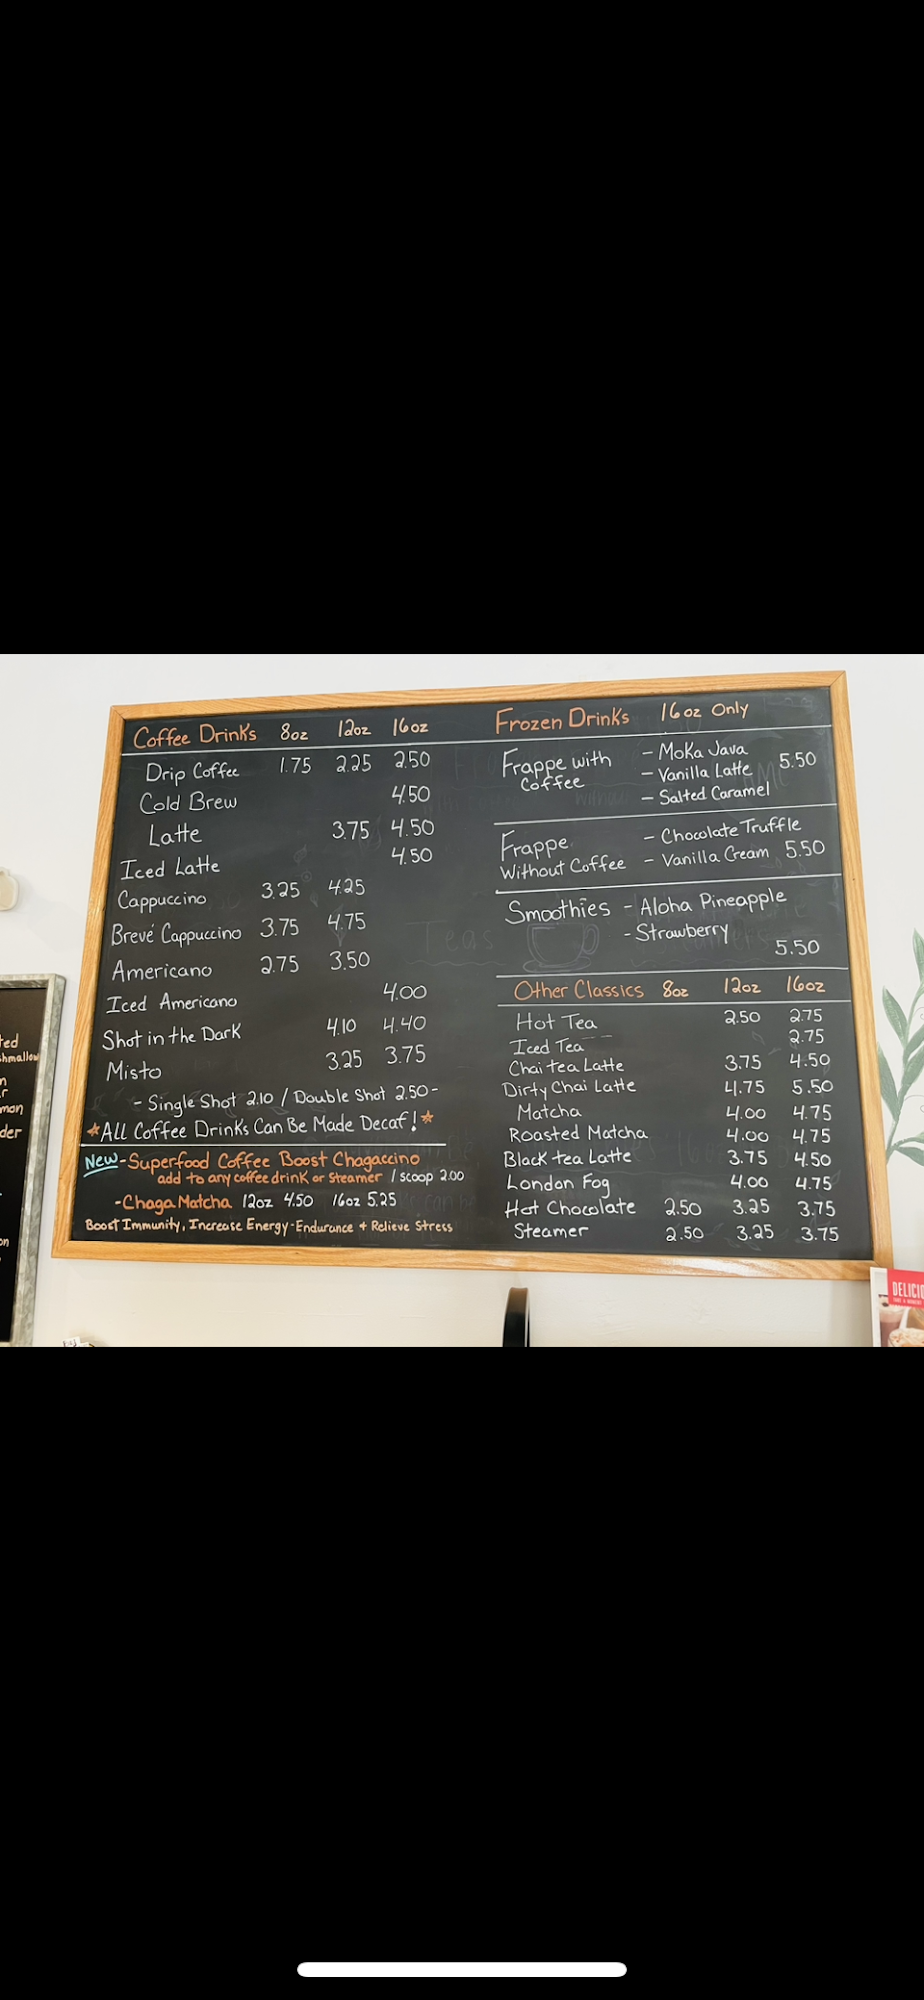 Coffee Drinks 8oz 12oz 16oz
Drip Coffee 1.75 2.25 2.50
Cold Brew 4.50
Latte 3.75 4.50
Iced Latte 4.50
Cappuccino 3.25 4.25
Brevé Cappuccino 3.75 4.75
Americano 2.75 3.50
Iced Americano 4.00
Shot in the Dark 4.10 4.40
Misto 3.25 3.75
- Single Shot 2.10 / Double Shot 2.50 -
*All Coffee Drinks Can Be Made Decaf!*
New - Superfood Coffee Boost Chagaccino
add to any coffee drink or steamer 1 scoop 2.00
- Chaga Matcha 12oz 4.50 16oz 5.25
Boost Immunity, Increase Energy-Endurance + Relieve Stress
Frozen Drinks 16oz Only
Frappe with Coffee
- Moka Java
- Vanilla Latte 5.50
- Salted Caramel
Frappe Without Coffee
- Chocolate Truffle
- Vanilla Cream 5.50
Smoothies - Aloha Pineapple
- Strawberry
5.50
Other Classics 8oz 12oz 16oz
Hot Tea 2.50 2.75
Iced Tea 2.75
Chai tea Latte 3.75 4.50
Dirty Chai Latte 4.75 5.50
Matcha 4.00 4.75
Roasted Matcha 4.00 4.75
Black tea Latte 3.75 4.50
London Fog 4.00 4.75
Hot Chocolate 2.50 3.25 3.75
Steamer 2.50 3.25 3.75
Teas